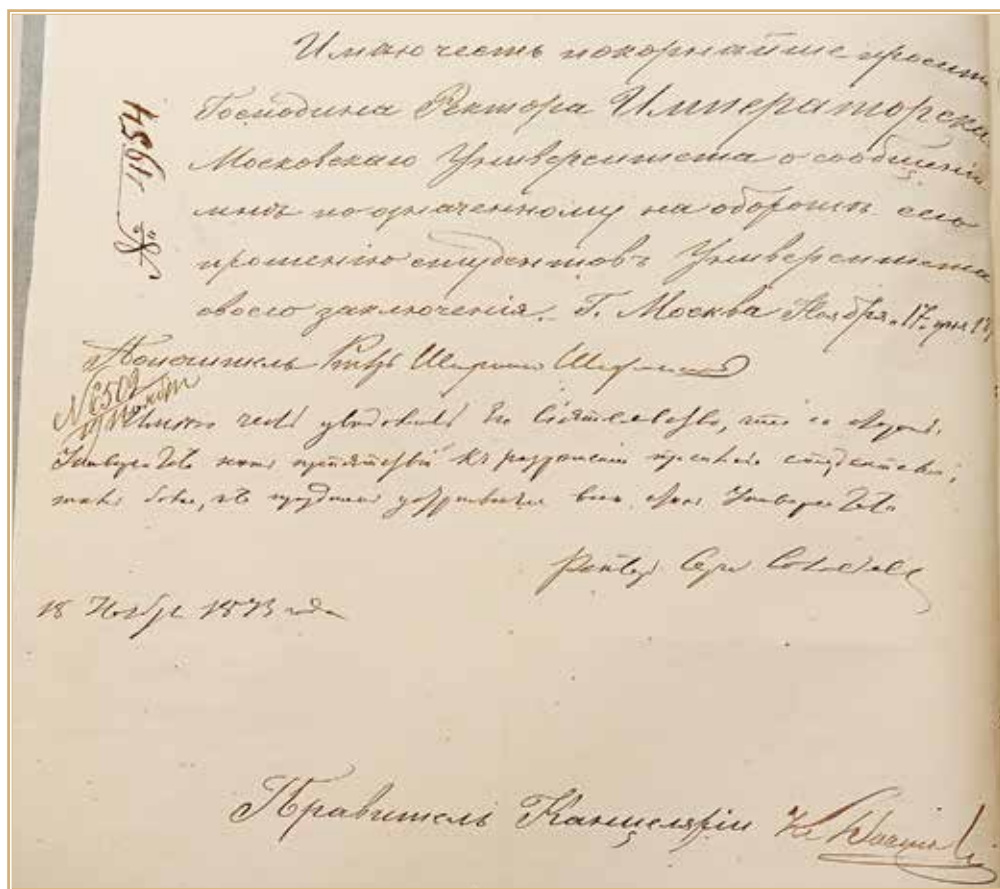 Имаю честь покорнѣйше просить
Господина Ректора Императорска
Московскаго Университета о сообщеніи
мнѣ по означенному на оборотѣ сего
прошенію студентовъ Университета
своего заключенія. Г. Москва Ноября 17 дня
№ 4954
Попечитель Князь Ширинскій Шихматовъ
№ 6502
19 Ноября
Имѣю честь увѣдомить Его Сіятельство, что со стороны
Университета нѣтъ препятствій къ разрѣшенію прошенія студентовъ,
Ректоръ Серг. Соловьевъ
18 Ноября 1873 года
Правитель Канцеляріи